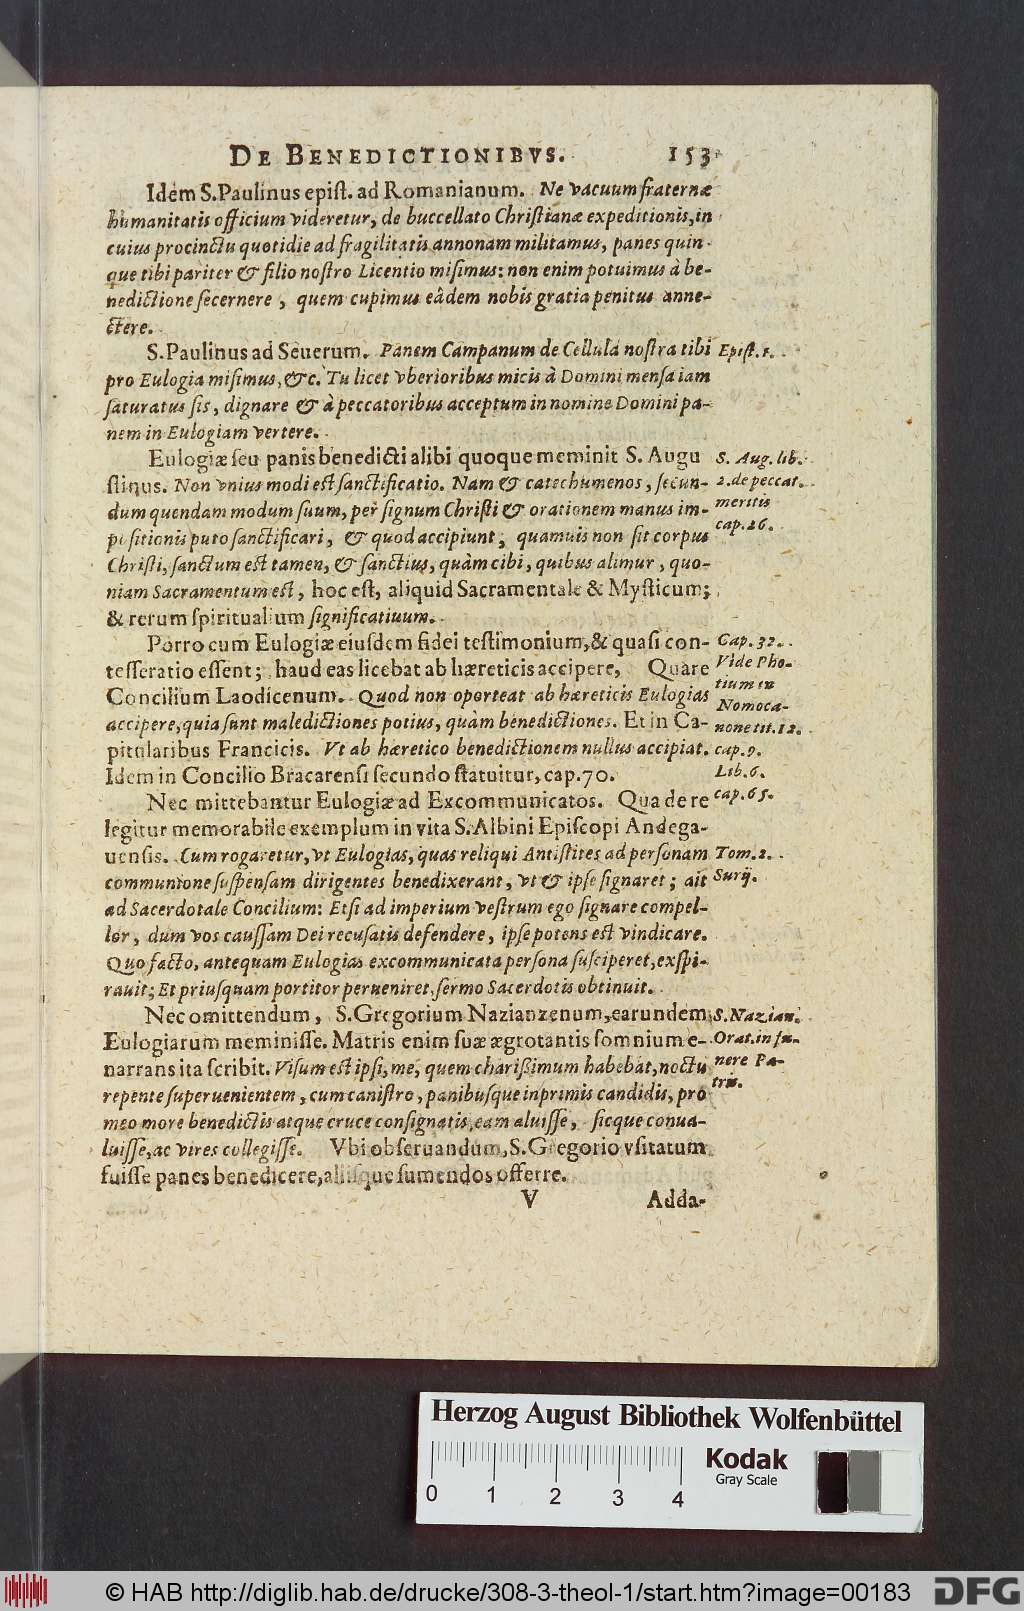 DE BENEDICTIONIBVS. 153
Idem S. Paulinus epiſt. ad Romanianum. Ne vacuum fraternæ
humanitatis officium videretur, de buccellato Chriſtianæ expeditionis, in
cuius procinctu quotidie ad fragilitatis annonam militamus, panes quin-
que tibi pariter & filio noſtro Licentio miſimus: non enim potuimus à be-
nedictione ſecernere, quem cupimus eâdem nobis gratia penitus anne-
ctere.
S. Paulinus ad Seuerum. Panem Campanum de Cellulâ noſtra tibi
Epiſt. 1.
pro Eulogia miſimus, &c. Tu licet vberioribus micis à Domini menſa iam
ſaturatus ſis, dignare & à peccatoribus acceptum in nomine Domini pa-
nem in Eulogiam vertere.
Eulogiæ ſeu panis benedicti alibi quoque meminit S. Augu
S. Aug. lib.
ſtinus. Non vnius modi eſt ſanctificatio. Nam & catechumenos, ſecun-
2. de peccat.
dum quendam modum ſuum, per ſignum Chriſti & orationem manus im-
meritis
poſitionis puto ſanctificari, & quod accipiunt, quamuis non ſit corpus
cap. 26.
Chriſti, ſanctum eſt tamen, & ſanctius, quàm cibi, quibus alimur, quo-
niam Sacramentum eſt, hoc eſt, aliquid Sacramentale & Myſticum;
& rerum ſpiritualium ſignificatiuum.
Porro cum Eulogiæ eiuſdem fidei teſtimonium, & quaſi con-
Cap. 32.
teſſeratio eſſent; haud eas licebat ab hæreticis accipere, Quare
Vide Pho-
Concilium Laodicenum. Quod non oporteat ab hæreticis Eulogias
tium in
Nomoca-
accipere, quia ſunt maledictiones potius, quàm benedictiones. Et in Ca-
none tit. 12.
pitularibus Francicis. Vt ab hæretico benedictionem nullus accipiat.
cap. 9.
Idem in Concilio Bracarenſi ſecundo ſtatuitur, cap. 70.
Lib. 6.
Nec mittebantur Eulogiæ ad Excommunicatos. Qua de re
cap. 65.
legitur memorabile exemplum in vita S. Albini Epiſcopi Andega-
uenſis. Cum rogaretur, vt Eulogias, quas reliqui Antiſtites ad perſonam
Tom. 2.
communione ſuſpenſam dirigentes benedixerant, vt & ipſe ſignaret; ait
Surij.
ad Sacerdotale Concilium: Etſi ad imperium veſtrum ego ſignare compel-
lor, dum vos cauſſam Dei recuſatis defendere, ipſe potens eſt vindicare.
Quo facto, antequam Eulogias excommunicata perſona ſuſciperet, exſpi-
rauit; Et priuſquam portitor perueniret, ſermo Sacerdotis obtinuit.
Nec omittendum, S. Gregorium Nazianzenum, earundem
S. Nazian.
Eulogiarum meminiſſe. Matris enim ſuæ ægrotantis ſomnium e-
Orat. in fu-
narrans ita ſcribit. Viſum eſt ipſi, me, quem chariſſimum habebat, noctu
nere Pa-
repente ſuperuenientem, cum caniſtro, panibuſque inprimis candidis, pro
tris.
meo more benedictis atque cruce conſignatis, eam aluiſſe, ſicque conua-
luiſſe, ac vires collegiſſe. Vbi obſeruandum, S. Gregorio vſitatum
fuiſſe panes benedicere, aliiſque ſumendos offerre.
V Adda-
Herzog August Bibliothek Wolfenbüttel
Kodak
Gray Scale
0 1 2 3 4
© HAB http://diglib.hab.de/drucke/308-3-theol-1/start.htm?image=00183
DFG